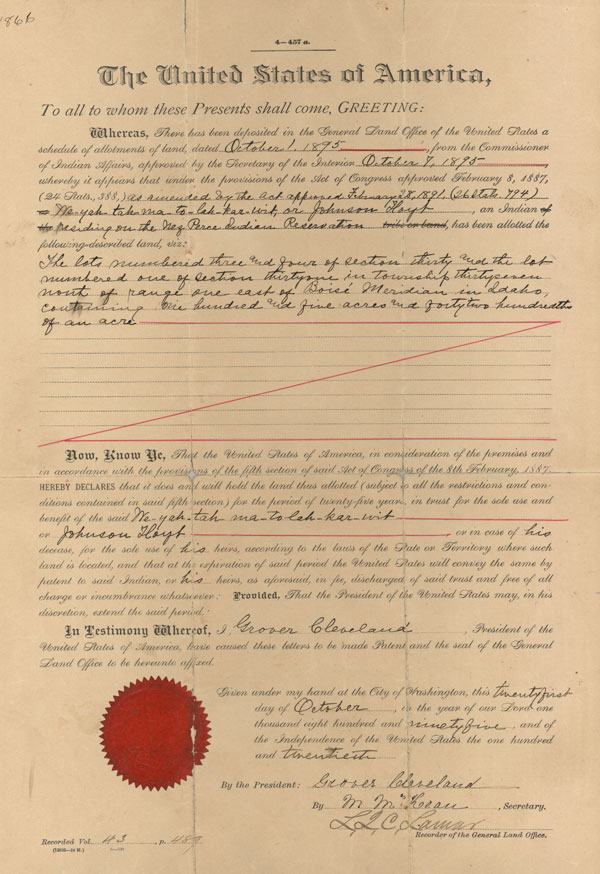 4—457 a.
The United States of America,
To all to whom these Presents shall come, GREETING:
Whereas, There has been deposited in the General Land Office of the United States a
schedule of allotments of land, dated October 1, 1895, from the Commissioner
of Indian Affairs, approved by the Secretary of the Interior October 7, 1895
whereby it appears that under the provisions of the Act of Congress approved February 8, 1887,
(24 Stats., 388,) as amended by the Act approved February 28, 1891, (26 Stats. 794)
We-yah-tah-ma-to-leh-kar-wit, or Johnson Hoyt, an Indian of
the residing on the Nez Perce Indian Reservation tribe or band, has been allotted the
following-described land, viz:
The lots numbered three and four of section thirty and the lot
numbered one of section thirtyone in township thirtyseven
north of range one east of Boisé Meridian in Idaho,
containing one hundred and five acres and fortytwo hundredths
of an acre
Now, Know Ye, That the United States of America, in consideration of the premises and
in accordance with the provisions of the fifth section of said Act of Congress of the 8th February, 1887,
HEREBY DECLARES that it does and will hold the land thus allotted (subject to all the restrictions and con-
ditions contained in said fifth section) for the period of twenty-five years, in trust for the sole use and
benefit of the said We-yah-tah-ma-to-leh-kar-wit
or Johnson Hoyt, or in case of his
decease, for the sole use of his heirs, according to the laws of the State or Territory where such
land is located, and that at the expiration of said period the United States will convey the same by
patent to said Indian, or his heirs, as aforesaid, in fee, discharged of said trust and free of all
charge or incumbrance whatsoever: Provided, That the President of the United States may, in his
discretion, extend the said period.
In Testimony Whereof, I, Grover Cleveland, President of the
United States of America, have caused these letters to be made Patent and the seal of the General
Land Office to be hereunto affixed.
Given under my hand at the City of Washington, this twentyfirst
day of October, in the year of our Lord one
thousand eight hundred and ninetyfive, and of
the Independence of the United States the one hundred
and twentieth
By the President: Grover Cleveland
By M. McKean, Secretary.
L.Q.C. Lamar
Recorder of the General Land Office.
Recorded Vol. 43, p. 489